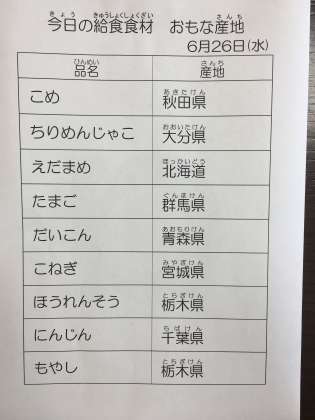 今日の給食食材 おもな産地
6月26日(水)
品名 産地
こめ 秋田県
ちりめんじゃこ 大分県
えだまめ 北海道
たまご 群馬県
だいこん 青森県
こねぎ 宮城県
ほうれんそう 栃木県
にんじん 千葉県
もやし 栃木県